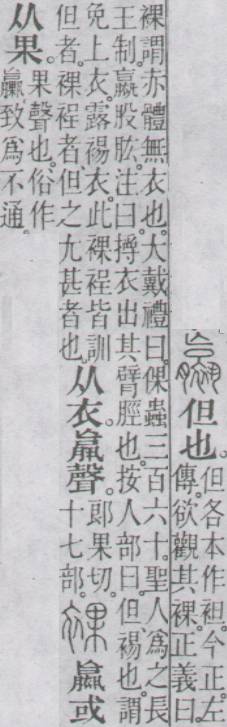 但也。
但各本作袒。今正。左
傳。欲觀其裸。正義曰。
裸謂赤體無衣也。大戴禮曰。倮蟲三百六十。聖人爲之長
王制。臝股肱。注曰。衣出其臂脛也。按人部曰。但、裼也。謂
免上衣。露裼衣。此裸裎皆訓
但者。裸裎者但之尤甚者也。
从衣。𦝠聲。
郎果切。
十七部。
臝或
从果。
果聲也。俗作
臝。致爲不通。